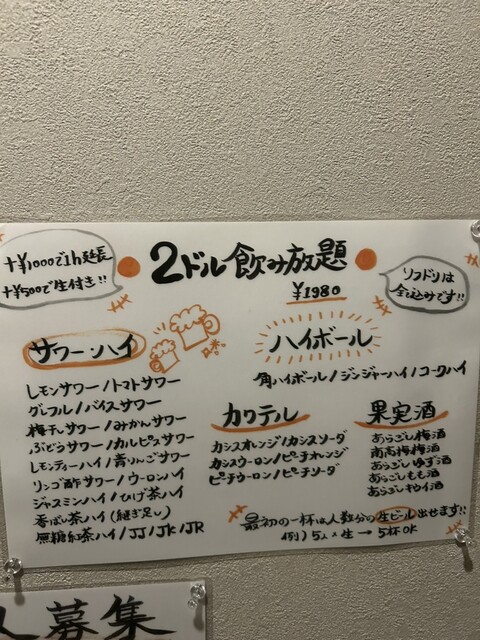 2ドル飲み放題
¥1980
+¥1000で1h延長
+¥500で生付き!!
ソフドリは
全て込みです!!
サワー・ハイ
レモンサワー/トマトサワー
グレフル/バイスサワー
梅干しサワー/みかんサワー
ぶどうサワー/カルピスサワー
レモンティーハイ/青りんごサワー
リンゴ酢サワー/ウーロンハイ
ジャスミンハイ/ひげ茶ハイ
香ばし茶ハイ(継ぎ足し)
無糖紅茶ハイ/JJ/JK/JR
ハイボール
角ハイボール/ジンジャーハイ/コークハイ
カクテル
カシスオレンジ/カシスソーダ
カシスウーロン/ピーチオレンジ
ピーチウーロン/ピーチソーダ
果実酒
あらごし梅酒
南高梅梅酒
あらごしゆず酒
あらごしもも酒
あらごしキウイ酒
最初の一杯は人数分の生ビール出せます!!
例) 5人×生→5杯OK
人募集